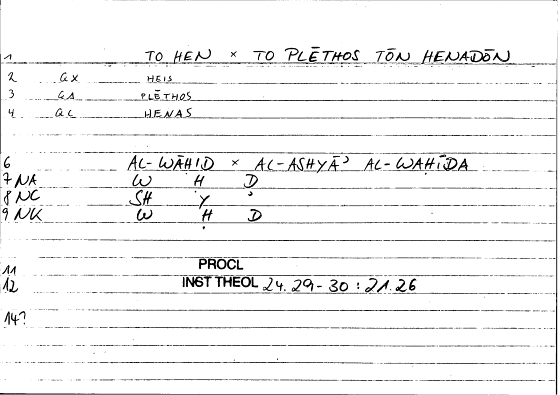 1 TO HEN × TO PLĒTHOS TŌN HENADŌN
2 GX HEIS
3 GA PLĒTHOS
4 GC HENAS
6 AL-WĀḤID × AL-ASHYĀʾ AL-WAḤĪDA
7 NA W Ḥ D
8 NC SH Y ʾ
9 NK W Ḥ D
11 PROCL
12 INST THEOL 24.29-30 : 21.26
14?